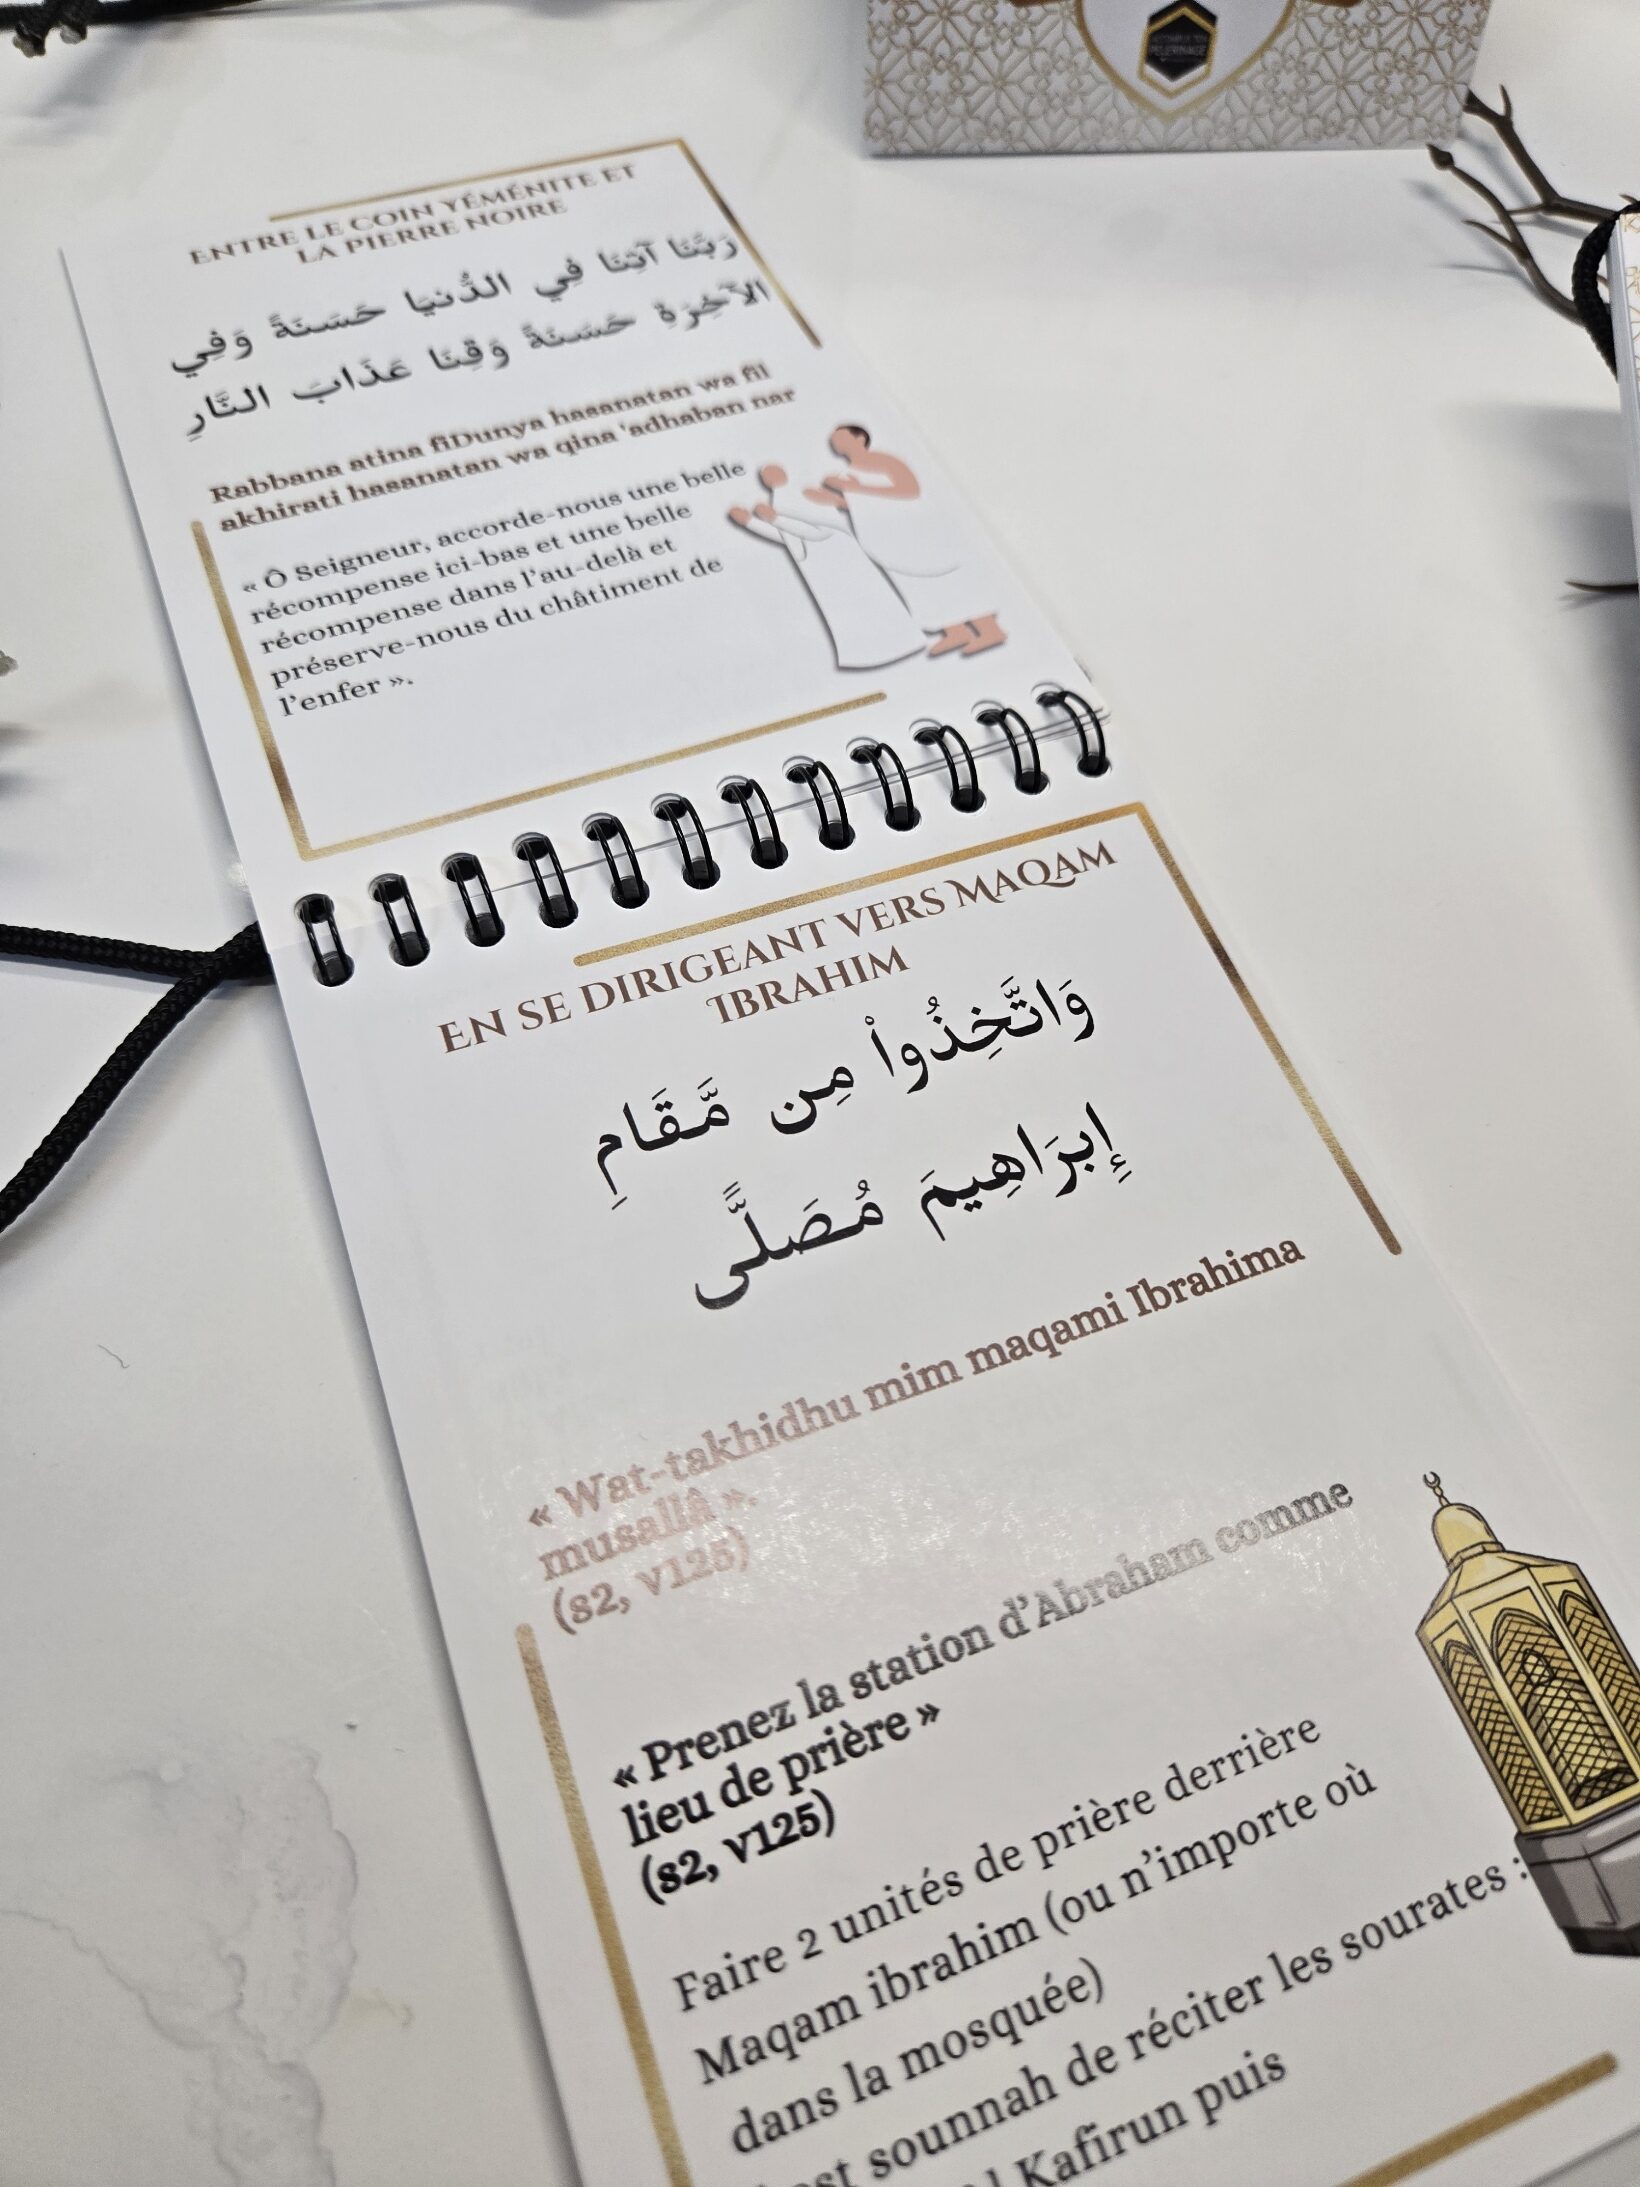 PELERINAGE
ENTRE LE COIN YÉMÉNITE ET
LA PIERRE NOIRE
رَبَّنَا آتِنَا فِي الدُّنيَا حَسَنَةً وَفِي
الآخِرَةِ حَسَنَةً وَقِنَا عَذَابَ النَّارِ
Rabbana atina fiDunya hasanatan wa fil
akhirati hasanatan wa qina 'adhaban nar
« Ô Seigneur, accorde-nous une belle
récompense ici-bas et une belle
récompense dans l'au-delà et
préserve-nous du châtiment de
l'enfer ».
EN SE DIRIGEANT VERS MAQAM
IBRAHIM
وَاتَّخِذُواْ مِن مَّقَامِ
إِبرَاهِيمَ مُصَلًّى
« Wat-takhidhu mim maqami Ibrahima
musallâ ».
(s2, v125)
« Prenez la station d'Abraham comme
lieu de prière »
(s2, v125)
Faire 2 unités de prière derrière
Maqam ibrahim (ou n'importe où
dans la mosquée)
est sounnah de réciter les sourates :
Kafirun puis